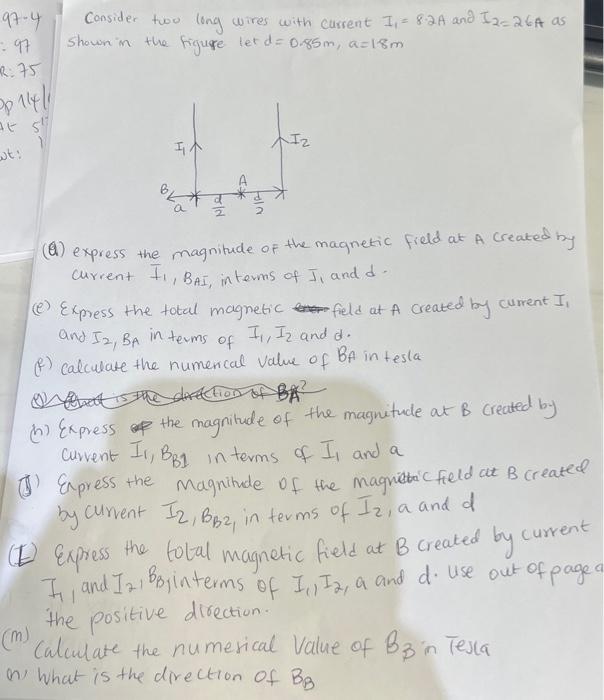 97-4
: 97
R: 75
Consider two long wires with current I₁ = 8.2A and I₂ = 26A as
shown in the figure let d = 0.85m, a = 18m
I₁
I₂
B
A
a
d/2
d/2
(a) express the magnitude of the magnetic field at A created by
current I₁, BAI, in terms of I₁ and d.
(e) Express the total magnetic field at A created by current I₁
and I₂, BA in terms of I₁, I₂ and d.
f) calculate the numerical value of BA in tesla
What is the direction of BA?
(h) Express of the magnitude of the magnitude at B created by
current I₁, BB1 in terms of I₁ and a
J) Express the magnitude of the magnetic field at B created
by current I₂, BB2, in terms of I₂, a and d
(L) Express the total magnetic field at B created by current
I₁, and I₂, BB, in terms of I₁, I₂, a and d. Use out of page a
the positive direction.
(m) Calculate the numerical value of BB in Tesla
n, What is the direction of BB